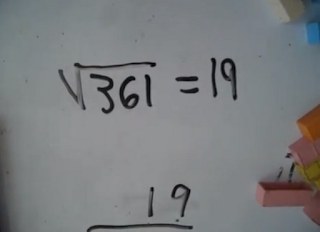 √361 = 19
19